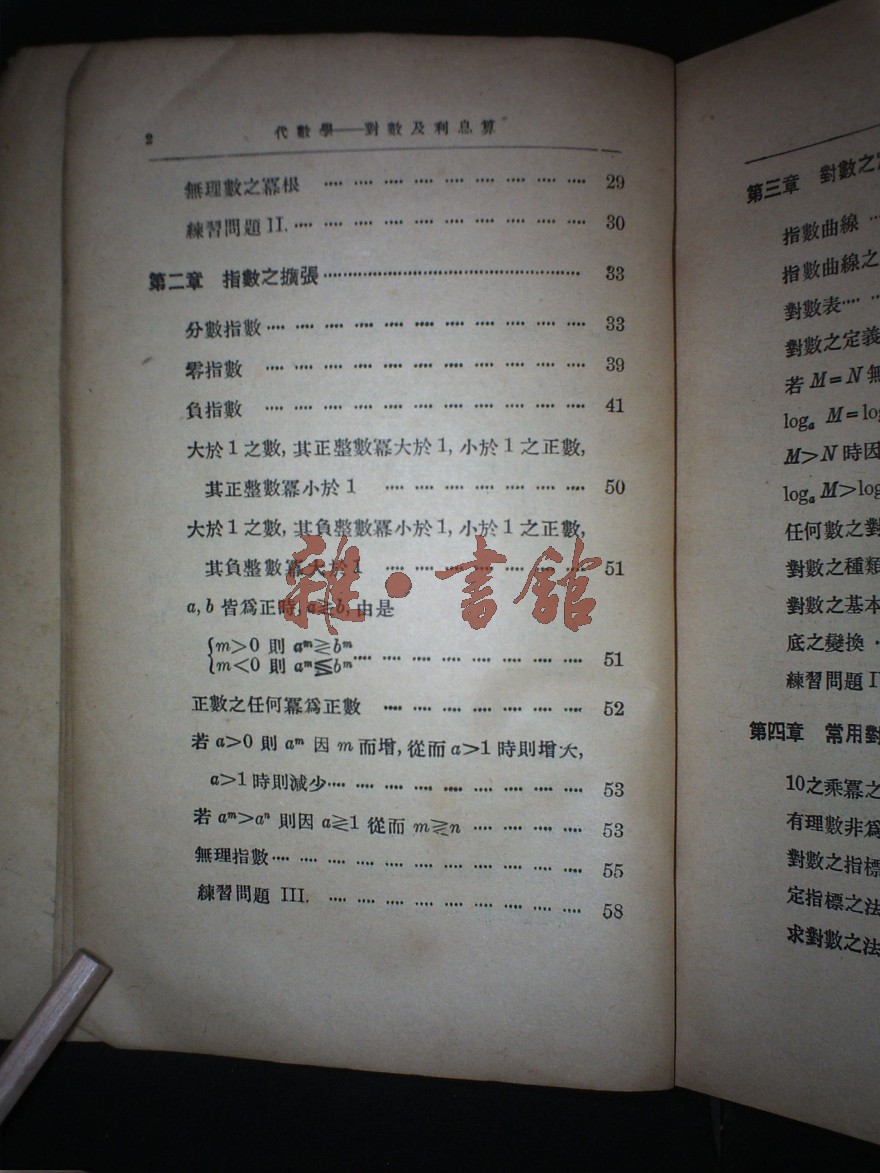 2 代數學——對數及利息算
無理數之冪根 ………… 29
練習問題 II. ………… 30
第二章 指數之擴張 ………… 33
分數指數 ………… 33
零指數 ………… 39
負指數 ………… 41
大於 1 之數, 其正整數冪大於 1, 小於 1 之正數,
其正整數冪小於 1 ………… 50
大於 1 之數, 其負整數冪小於 1, 小於 1 之正數,
其負整數冪大於 1 ………… 51
a, b 皆爲正時, a≧b, 由是
m>0 則 aᵐ≧bᵐ
m<0 則 aᵐ≦bᵐ ………… 51
正數之任何冪爲正數 ………… 52
若 a>0 則 aᵐ 因 m 而增, 從而 a>1 時則增大,
a>1 時則減少 ………… 53
若 aᵐ>aⁿ 則因 a≷1 從而 m≷n ………… 53
無理指數 ………… 55
練習問題 III. ………… 58
雜·書館
第三章 對數之
指數曲線
指數曲線之
對數表
對數之定義
若 M=N 無
logₐ M=log
M>N 時因
logₐ M>log
任何數之對
對數之種類
對數之基本
底之變換
練習問題 I
第四章 常用對
10之乘冪之
有理數非爲
對數之指標
定指標之法
求對數之法